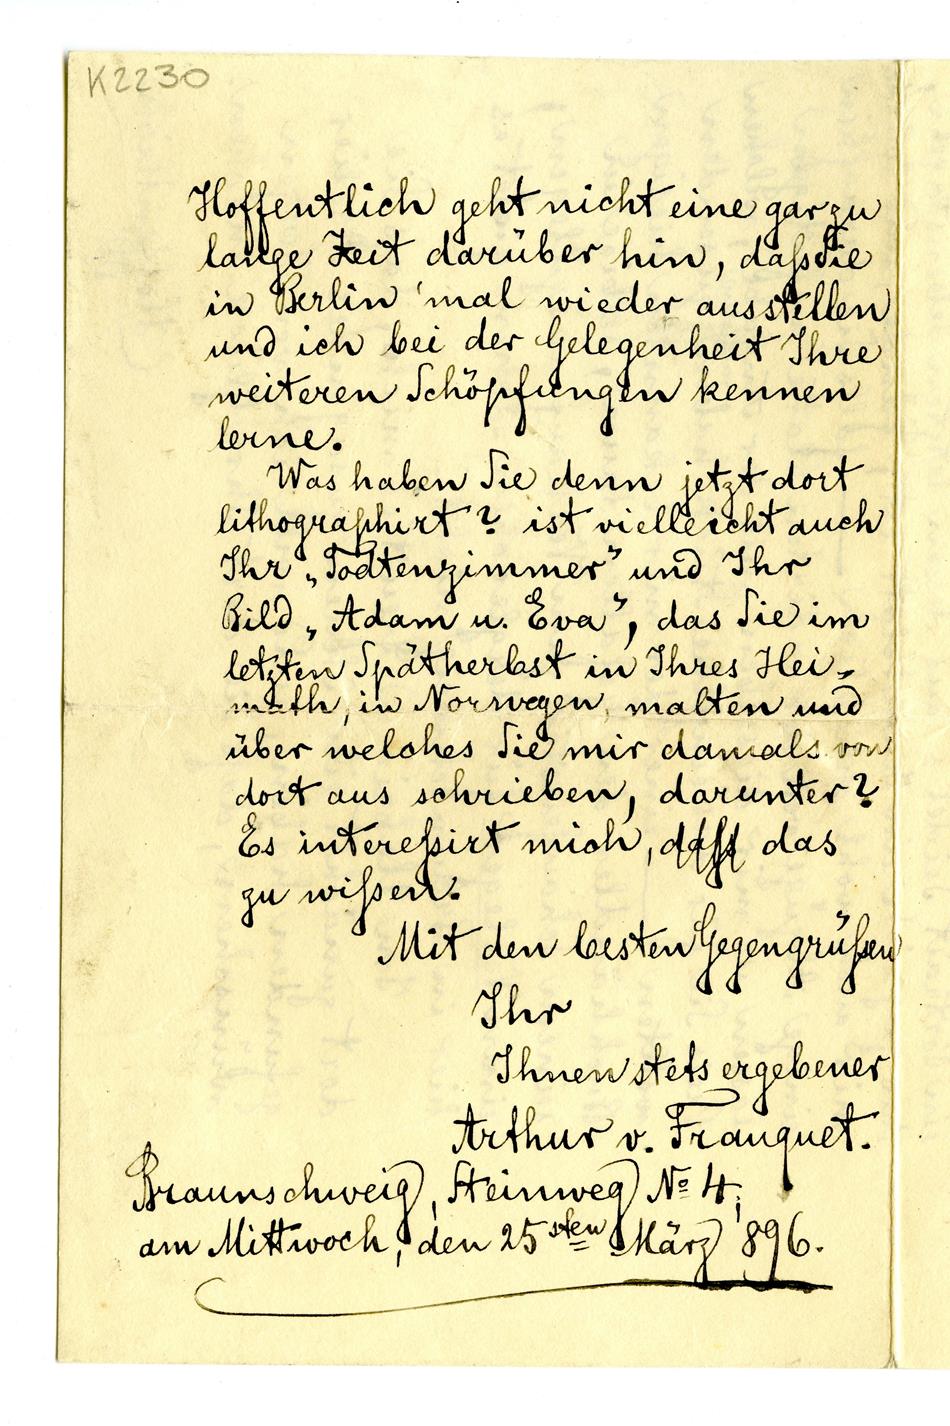 K2230
Hoffentlich geht nicht eine gar zu
lange Zeit darüber hin, daß Sie
in Berlin 'mal wieder ausstellen
und ich bei der Gelegenheit Ihre
weiteren Schöpfungen kennen
lerne.
Was haben Sie denn jetzt dort
lithographirt? ist vielleicht auch
Ihr „Todtenzimmer” und Ihr
Bild „Adam u. Eva”, das Sie im
letzten Spätherbst in Ihres Hei-
math, in Norwegen, malten und
über welches Sie mir damals von
dort aus schrieben, darunter?
Es intereßirt mich, daß das
zu wißen.
Mit den besten Gegengrüßen
Ihr
Ihnen stets ergebener
Arthur v. Franquet.
Braunschweig, Steinweg No 4,
am Mittwoch, den 25sten März '896.